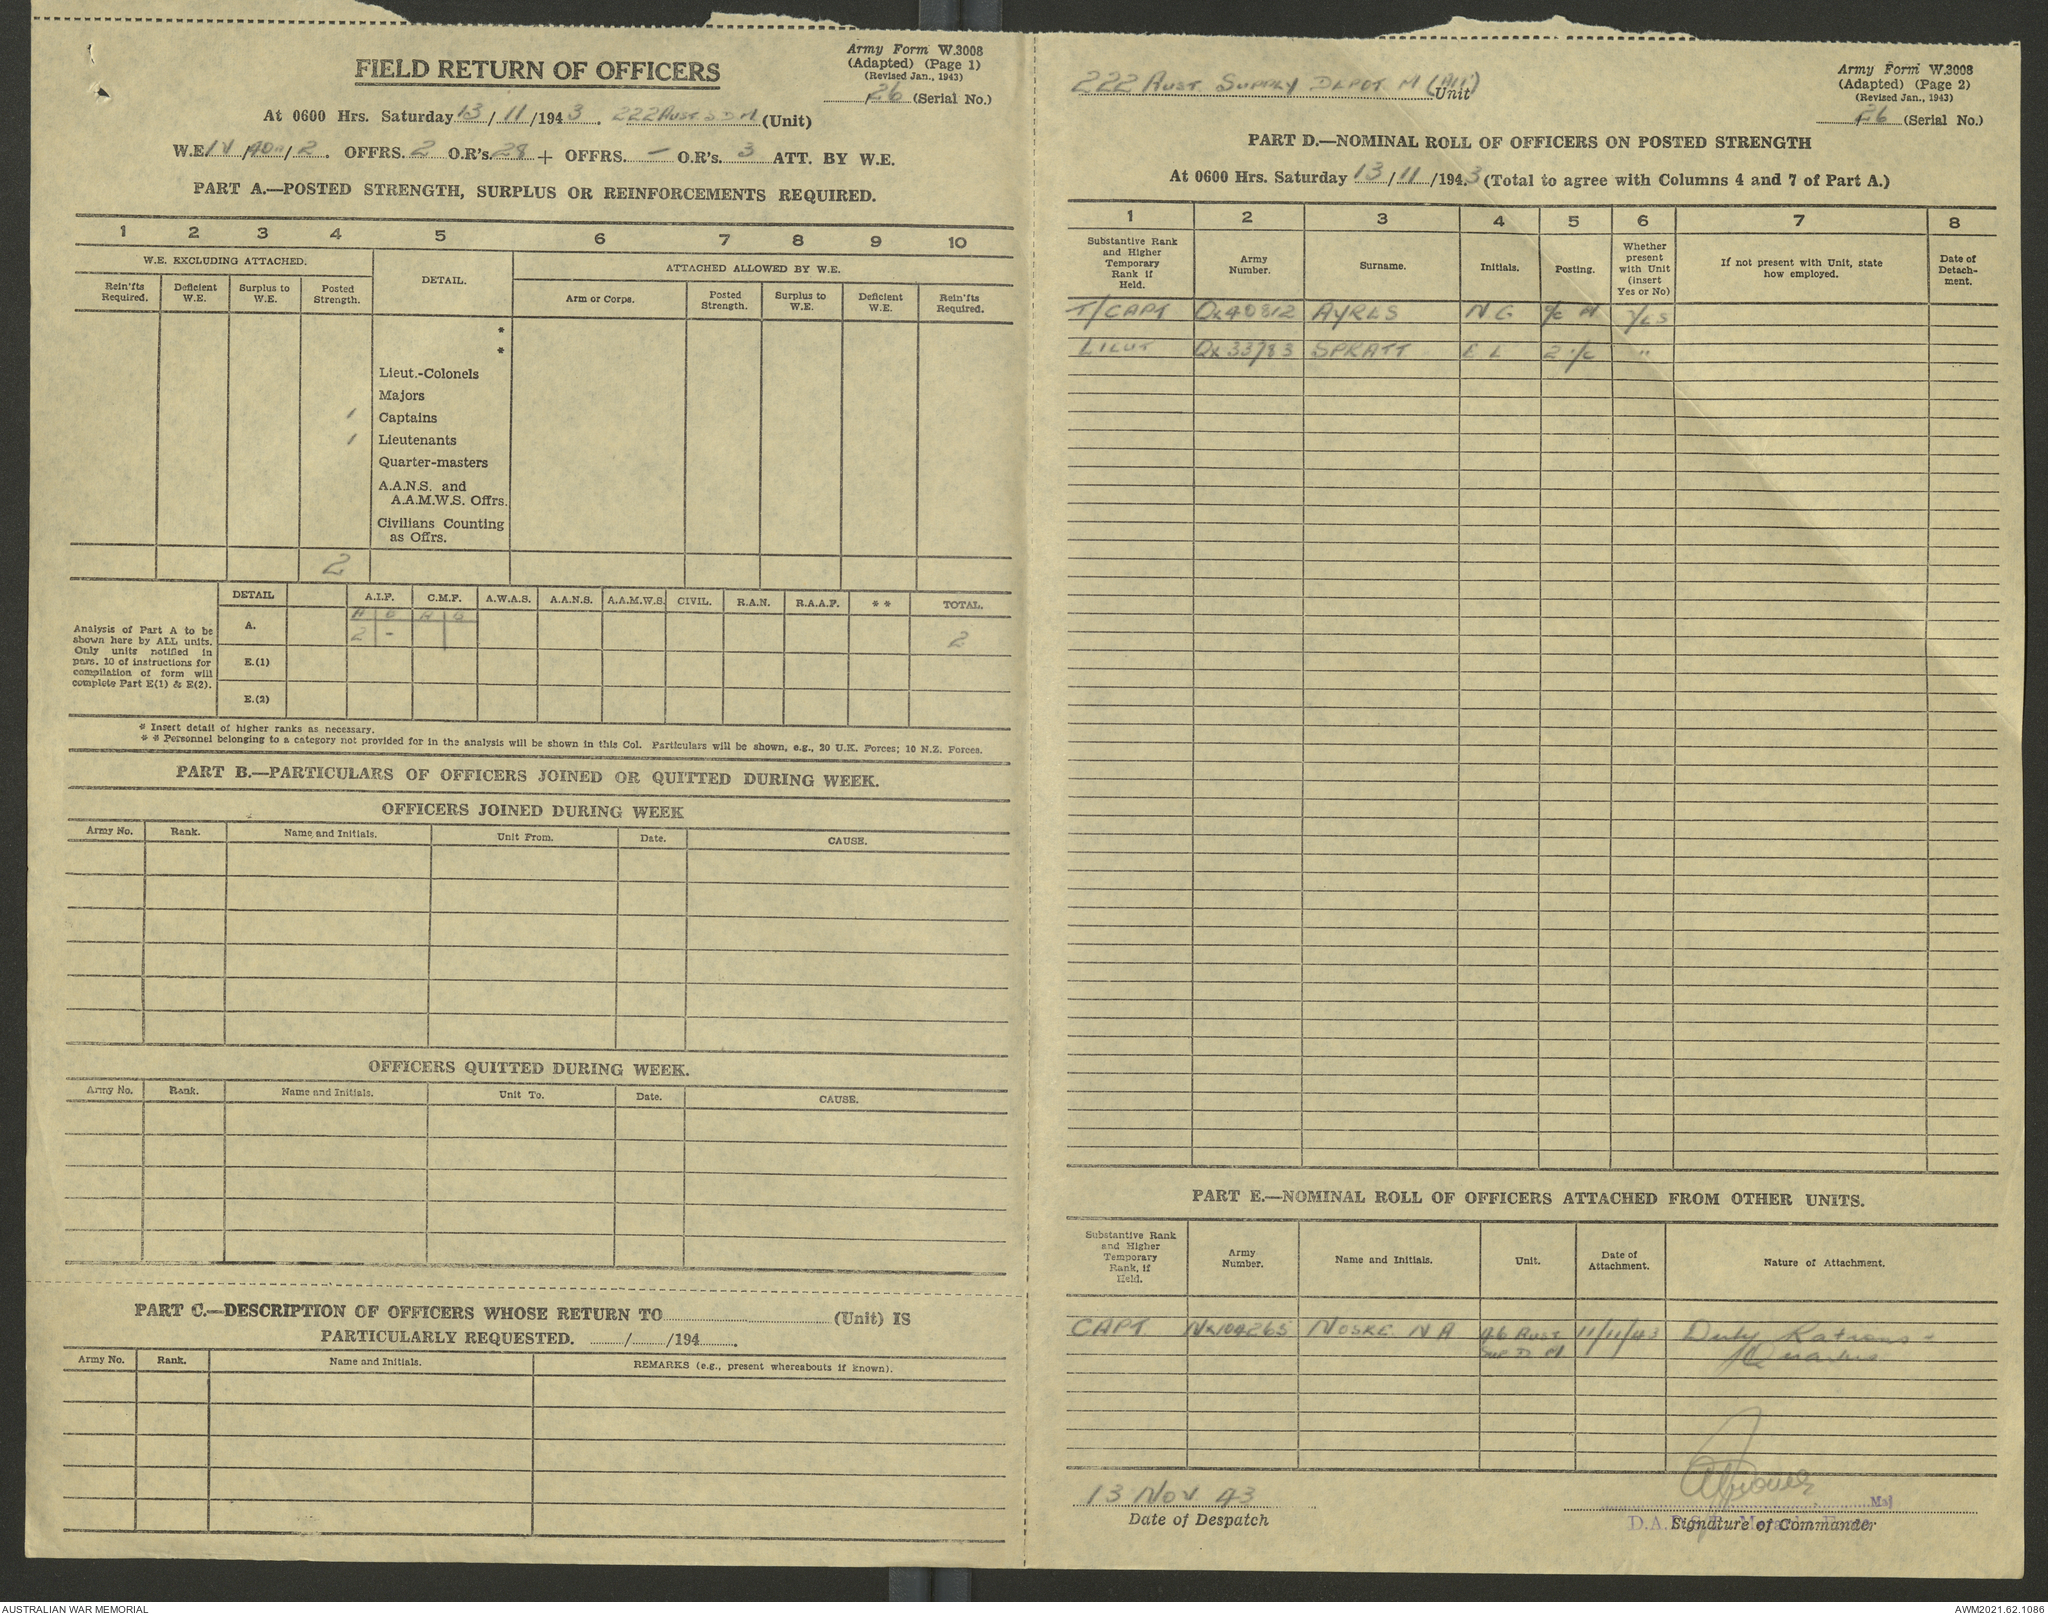 Army Form W.3008
(Adapted) (Page 1)
(Revised Jan., 1943)
26 (Serial No.)
FIELD RETURN OF OFFICERS
At 0600 Hrs. Saturday 13/11/1943. 222 Aust S D M (Unit)
W.E. OFFRS. 2 O.R's. 28 + OFFRS. – O.R's. 3 ATT. BY W.E.
PART A.—POSTED STRENGTH, SURPLUS OR REINFORCEMENTS REQUIRED.
1 2 3 4 5 6 7 8 9 10
W.E. EXCLUDING ATTACHED.
DETAIL.
ATTACHED ALLOWED BY W.E.
Rein'fts Required.
Deficient W.E.
Surplus to W.E.
Posted Strength.
Arm or Corps.
Posted Strength.
Surplus to W.E.
Deficient W.E.
Rein'fts Required.
*
*
Lieut.-Colonels
Majors
1 Captains
1 Lieutenants
Quarter-masters
A.A.N.S. and
A.A.M.W.S. Offrs.
Civilians Counting
as Offrs.
2
DETAIL A.I.F. C.M.F. A.W.A.S. A.A.N.S. A.A.M.W.S. CIVIL. R.A.N. R.A.A.F. * * TOTAL.
A B A B
A. 2 - 2
E.(1)
E.(2)
Analysis of Part A to be
shown here by ALL units.
Only units notified in
para. 10 of instructions for
compilation of form will
complete Part E(1) & E(2).
* Insert detail of higher ranks as necessary.
* * Personnel belonging to a category not provided for in the analysis will be shown in this Col. Particulars will be shown, e.g., 20 U.K. Forces; 10 N.Z. Forces.
PART B.—PARTICULARS OF OFFICERS JOINED OR QUITTED DURING WEEK.
OFFICERS JOINED DURING WEEK
Army No. Rank. Name and Initials. Unit From. Date. CAUSE.
OFFICERS QUITTED DURING WEEK.
Army No. Rank. Name and Initials. Unit To. Date. CAUSE.
PART C.—DESCRIPTION OF OFFICERS WHOSE RETURN TO (Unit) IS
PARTICULARLY REQUESTED. / /194 .
Army No. Rank. Name and Initials. REMARKS (e.g., present whereabouts if known).
222 AUST. SUPPLY DEPOT M (AIF) Unit
Army Form W.3008
(Adapted) (Page 2)
(Revised Jan., 1943)
26 (Serial No.)
PART D.—NOMINAL ROLL OF OFFICERS ON POSTED STRENGTH
At 0600 Hrs. Saturday 13/11/1943 (Total to agree with Columns 4 and 7 of Part A.)
1 2 3 4 5 6 7 8
Substantive Rank and Higher Temporary Rank if Held.
Army Number.
Surname.
Initials.
Posting.
Whether present with Unit (insert Yes or No)
If not present with Unit, state how employed.
Date of Detach-ment.
T/CAPT QX40812 AYRES N G YES
LIEUT QX33783 SPRATT E L 2 i/c "
PART E.—NOMINAL ROLL OF OFFICERS ATTACHED FROM OTHER UNITS.
Substantive Rank and Higher Temporary Rank, if Held.
Army Number.
Name and Initials.
Unit.
Date of Attachment.
Nature of Attachment.
CAPT NX104265 NOSKE N A 46 AUST 11/11/43 Duty Rations +
SUP D M Quarters
13 NOV 43
Date of Despatch
Maj
Signature of Commander
AUSTRALIAN WAR MEMORIAL
AWM2021.62.1086